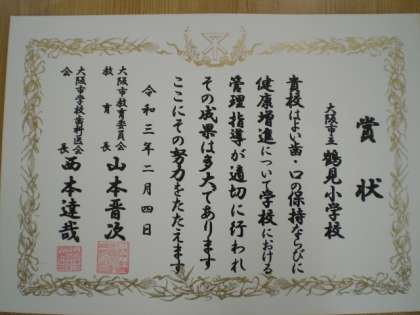 賞状
大阪市立 鶴見小学校
貴校はよい歯・口の保持ならびに
健康増進について学校における
管理指導が適切に行われ
その成果は多大であります
ここにその努力をたたえます
令和三年二月四日
大阪市教育委員会
教育長 山本晋次
大阪市学校歯科医会
会長 西本達哉